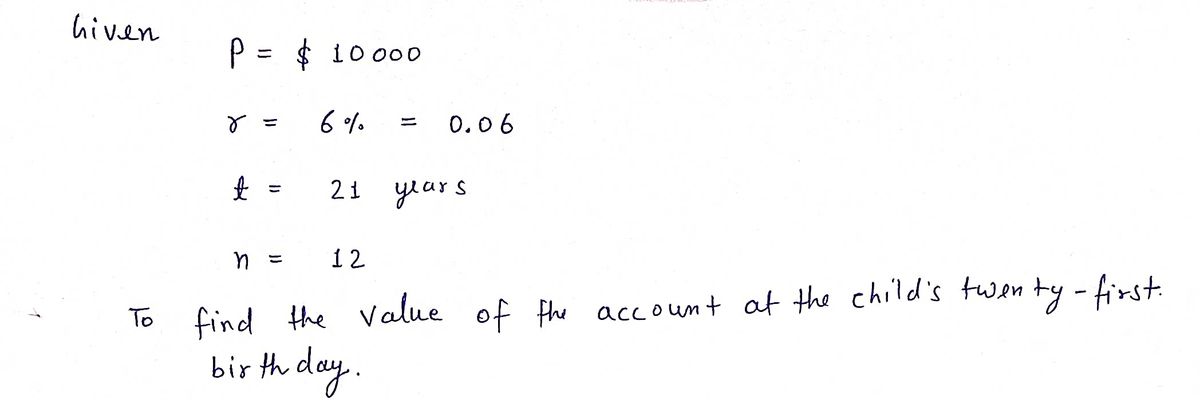 Given
P = $ 10000
r = 6% = 0.06
t = 21 years
n = 12
To find the value of the account at the child's twenty-first
birthday.